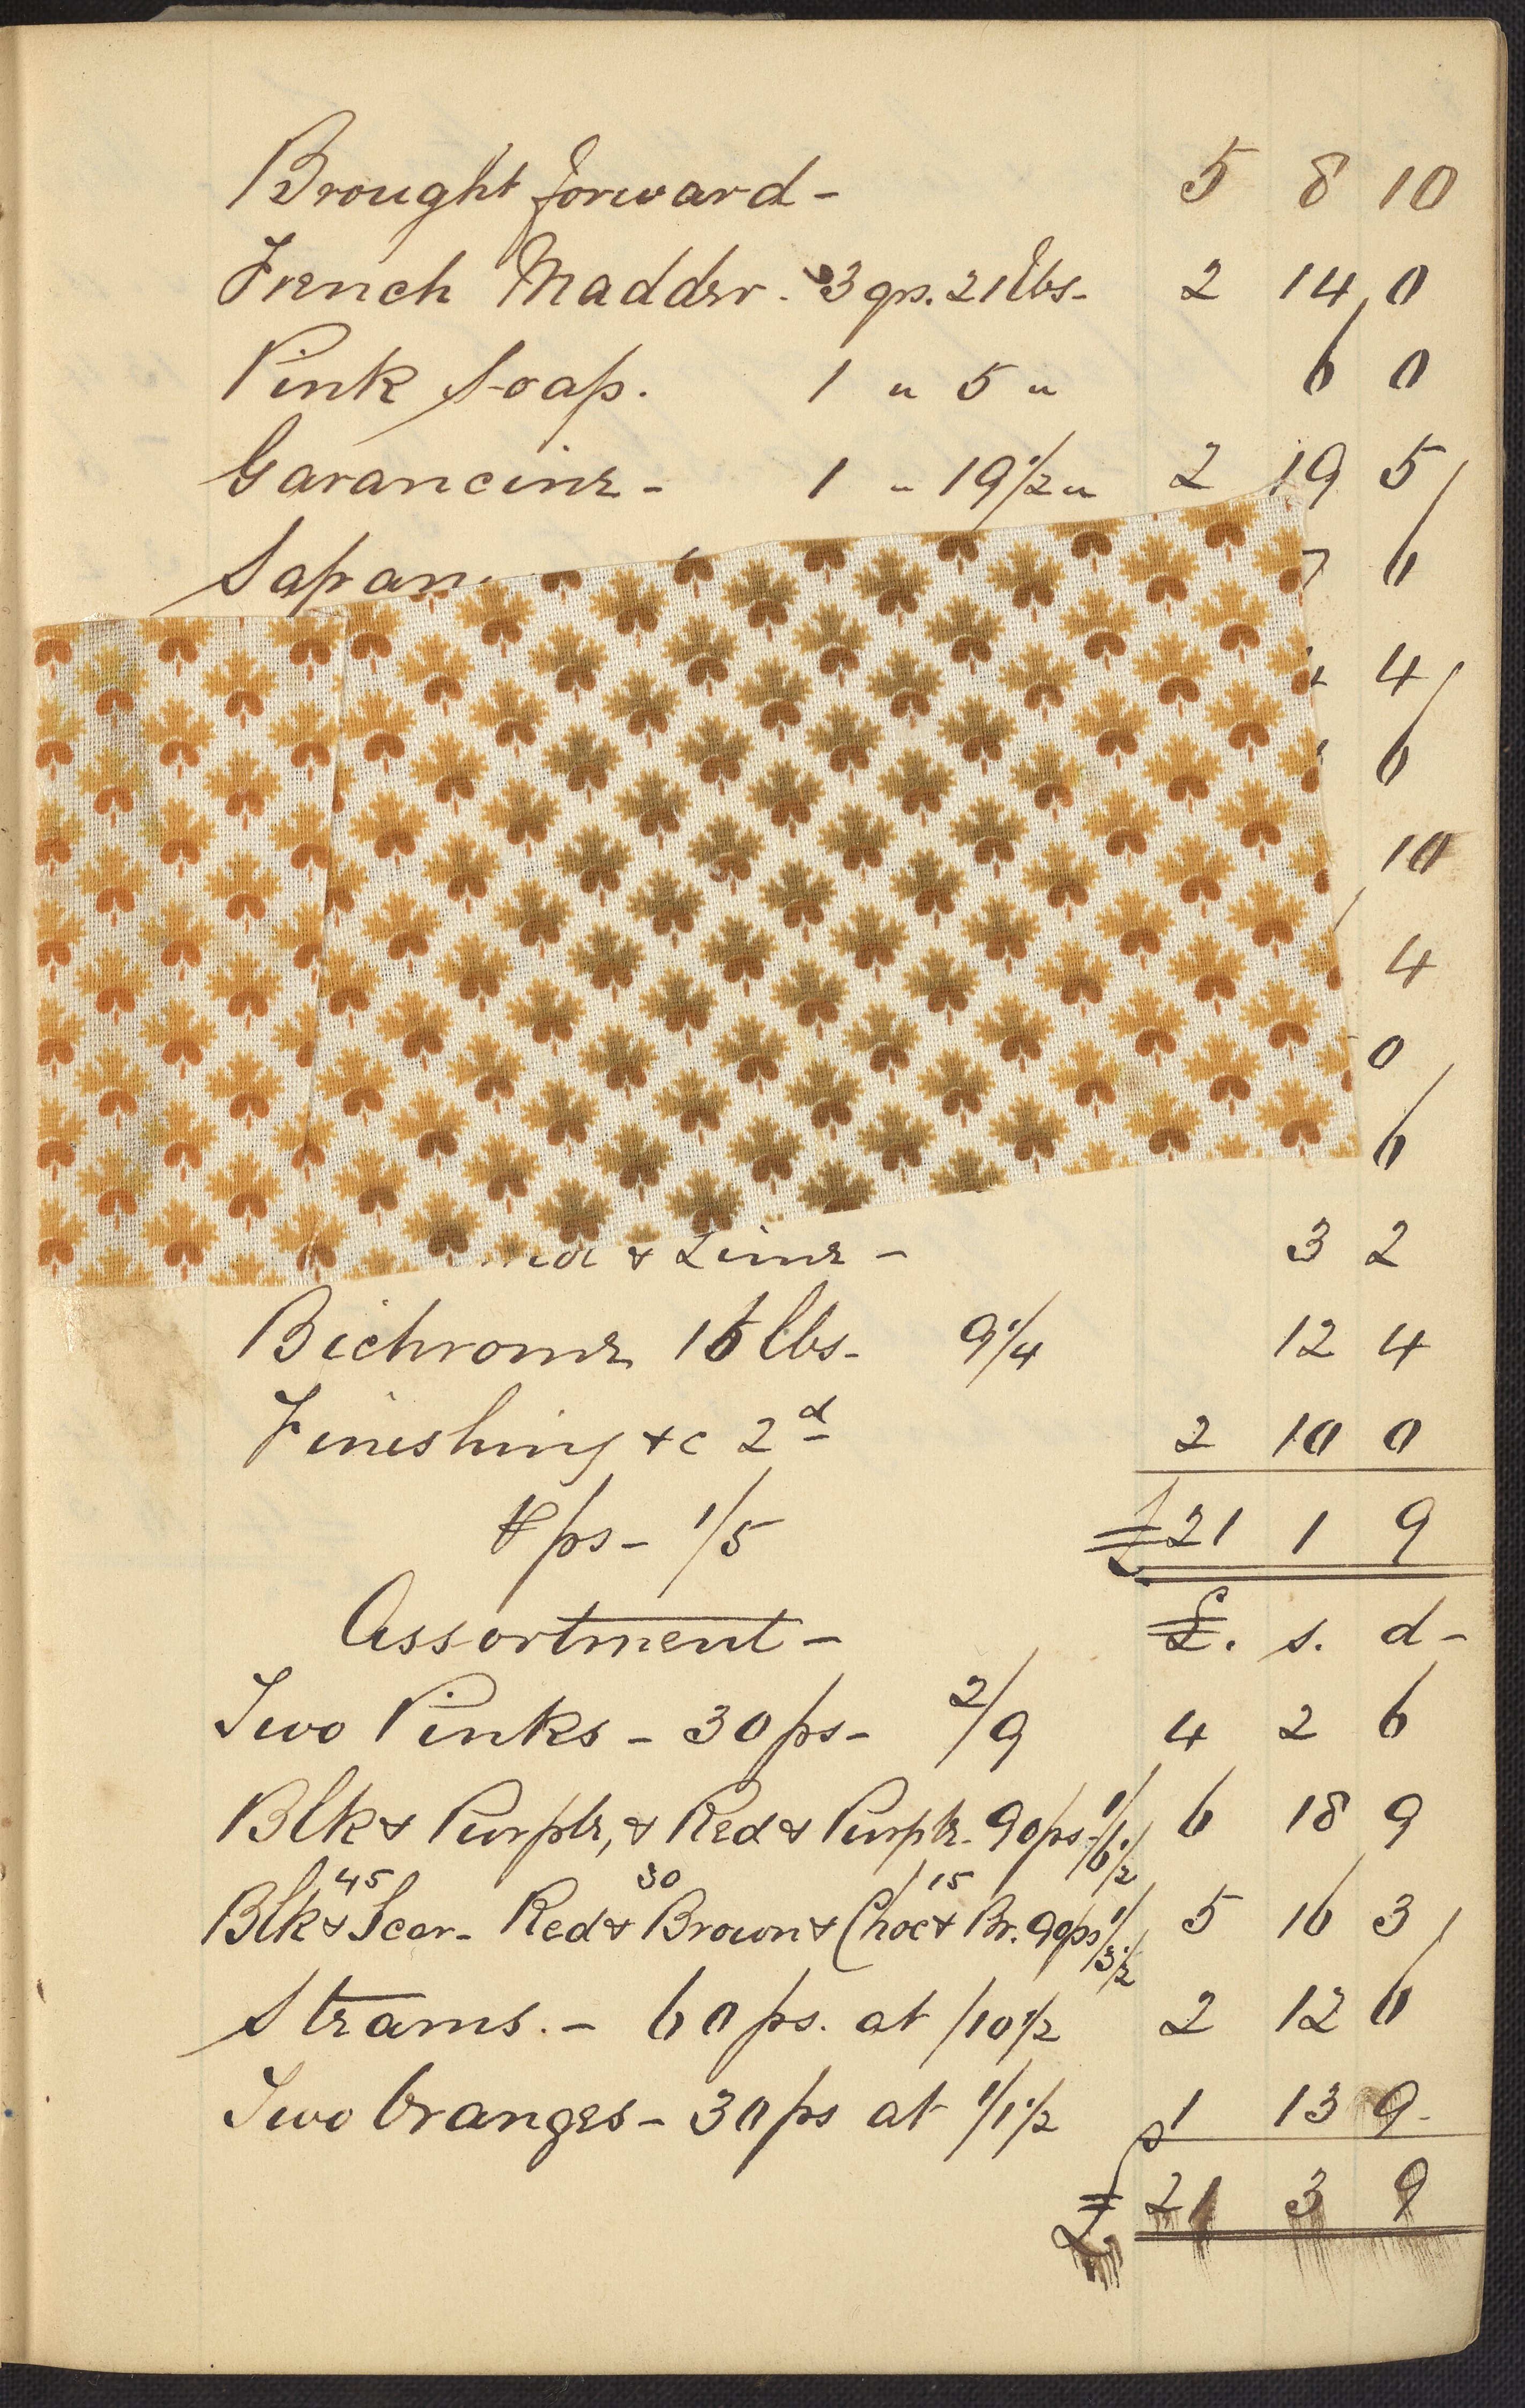 Brought forward - 5 8 10
French Madder. 3 qrs. 21 lbs- 2 14 0
Pink Soap. 1 " 5 " 6 0
Garancine - 1 " 19 1/2 " 2 19 5
Sapan 7 6
4
6
10
4
0
6
& Lime - 3 2
Bichrome 16 lbs- 9 1/4 12 4
Finishing &c 2d 2 10 0
℔ ps- 1/5 £21 1 9
Assortment - £. s. d-
Two Pinks - 30 ps- 2/9 4 2 6
Blk & Purple, & Red & Purple- 90 ps- 1/6 1/2 6 18 9
45 30 15
Blk & Scar- Red & Brown & Choc & Br. 90 ps 1/3 1/2 5 16 3
Steams. - 60 ps. at /10 1/2 2 12 6
Two Oranges - 30 ps at 1/1 1/2 1 13 9-
£ 21 3 9